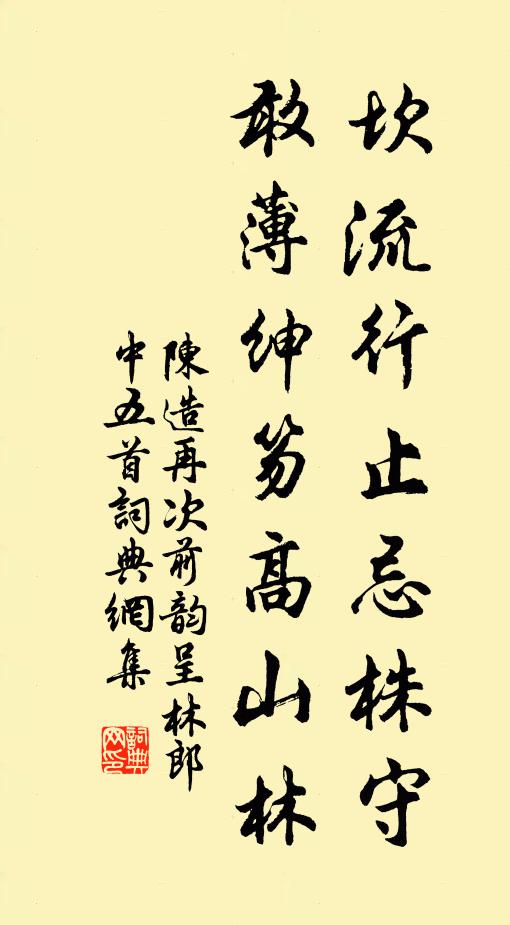 坎流行止忌株守
敢薄紳笏高山林
陳造再次前韵呈林郎
中五首詞典網集
詞典
网印